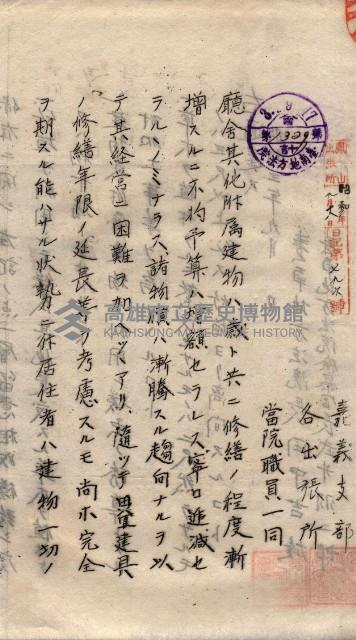 嘉義支部
各出張所
當院職員一同
廳舍其他附属建物ハ歳ト共ニ修繕ノ程度漸
増スルニ不拘予算増額セラレス寧ロ逓減セ
ラルヽノミナラス諸物價ハ漸騰スル趨向ナルヲ以
テ其経営ニ困難ヲ加ヘツヽアリ、随ツテ畳建具
ノ修繕年限ノ延長等ヲ考慮スルモ尚ホ完全
ヲ期スル能ハサル状勢ニ在居住者ハ建物一切ノ
高雄市立歷史博物館
KAOHSIUNG MUSEUM OF HISTORY
臺南地方法院
8. 9. 17
昭和
日記第